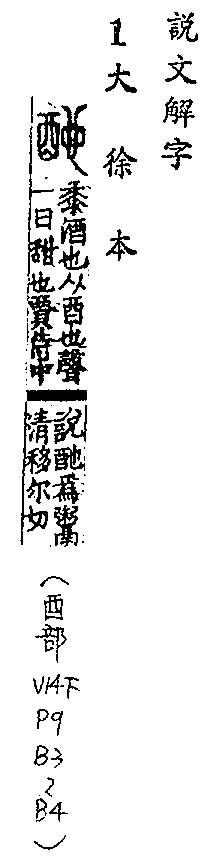 説文解字
1大徐本
酏
黍酒也从酉也聲
一曰甜也賈侍中
說酏爲鬻
清移尔切
(酉部V14下P9B3~B4)